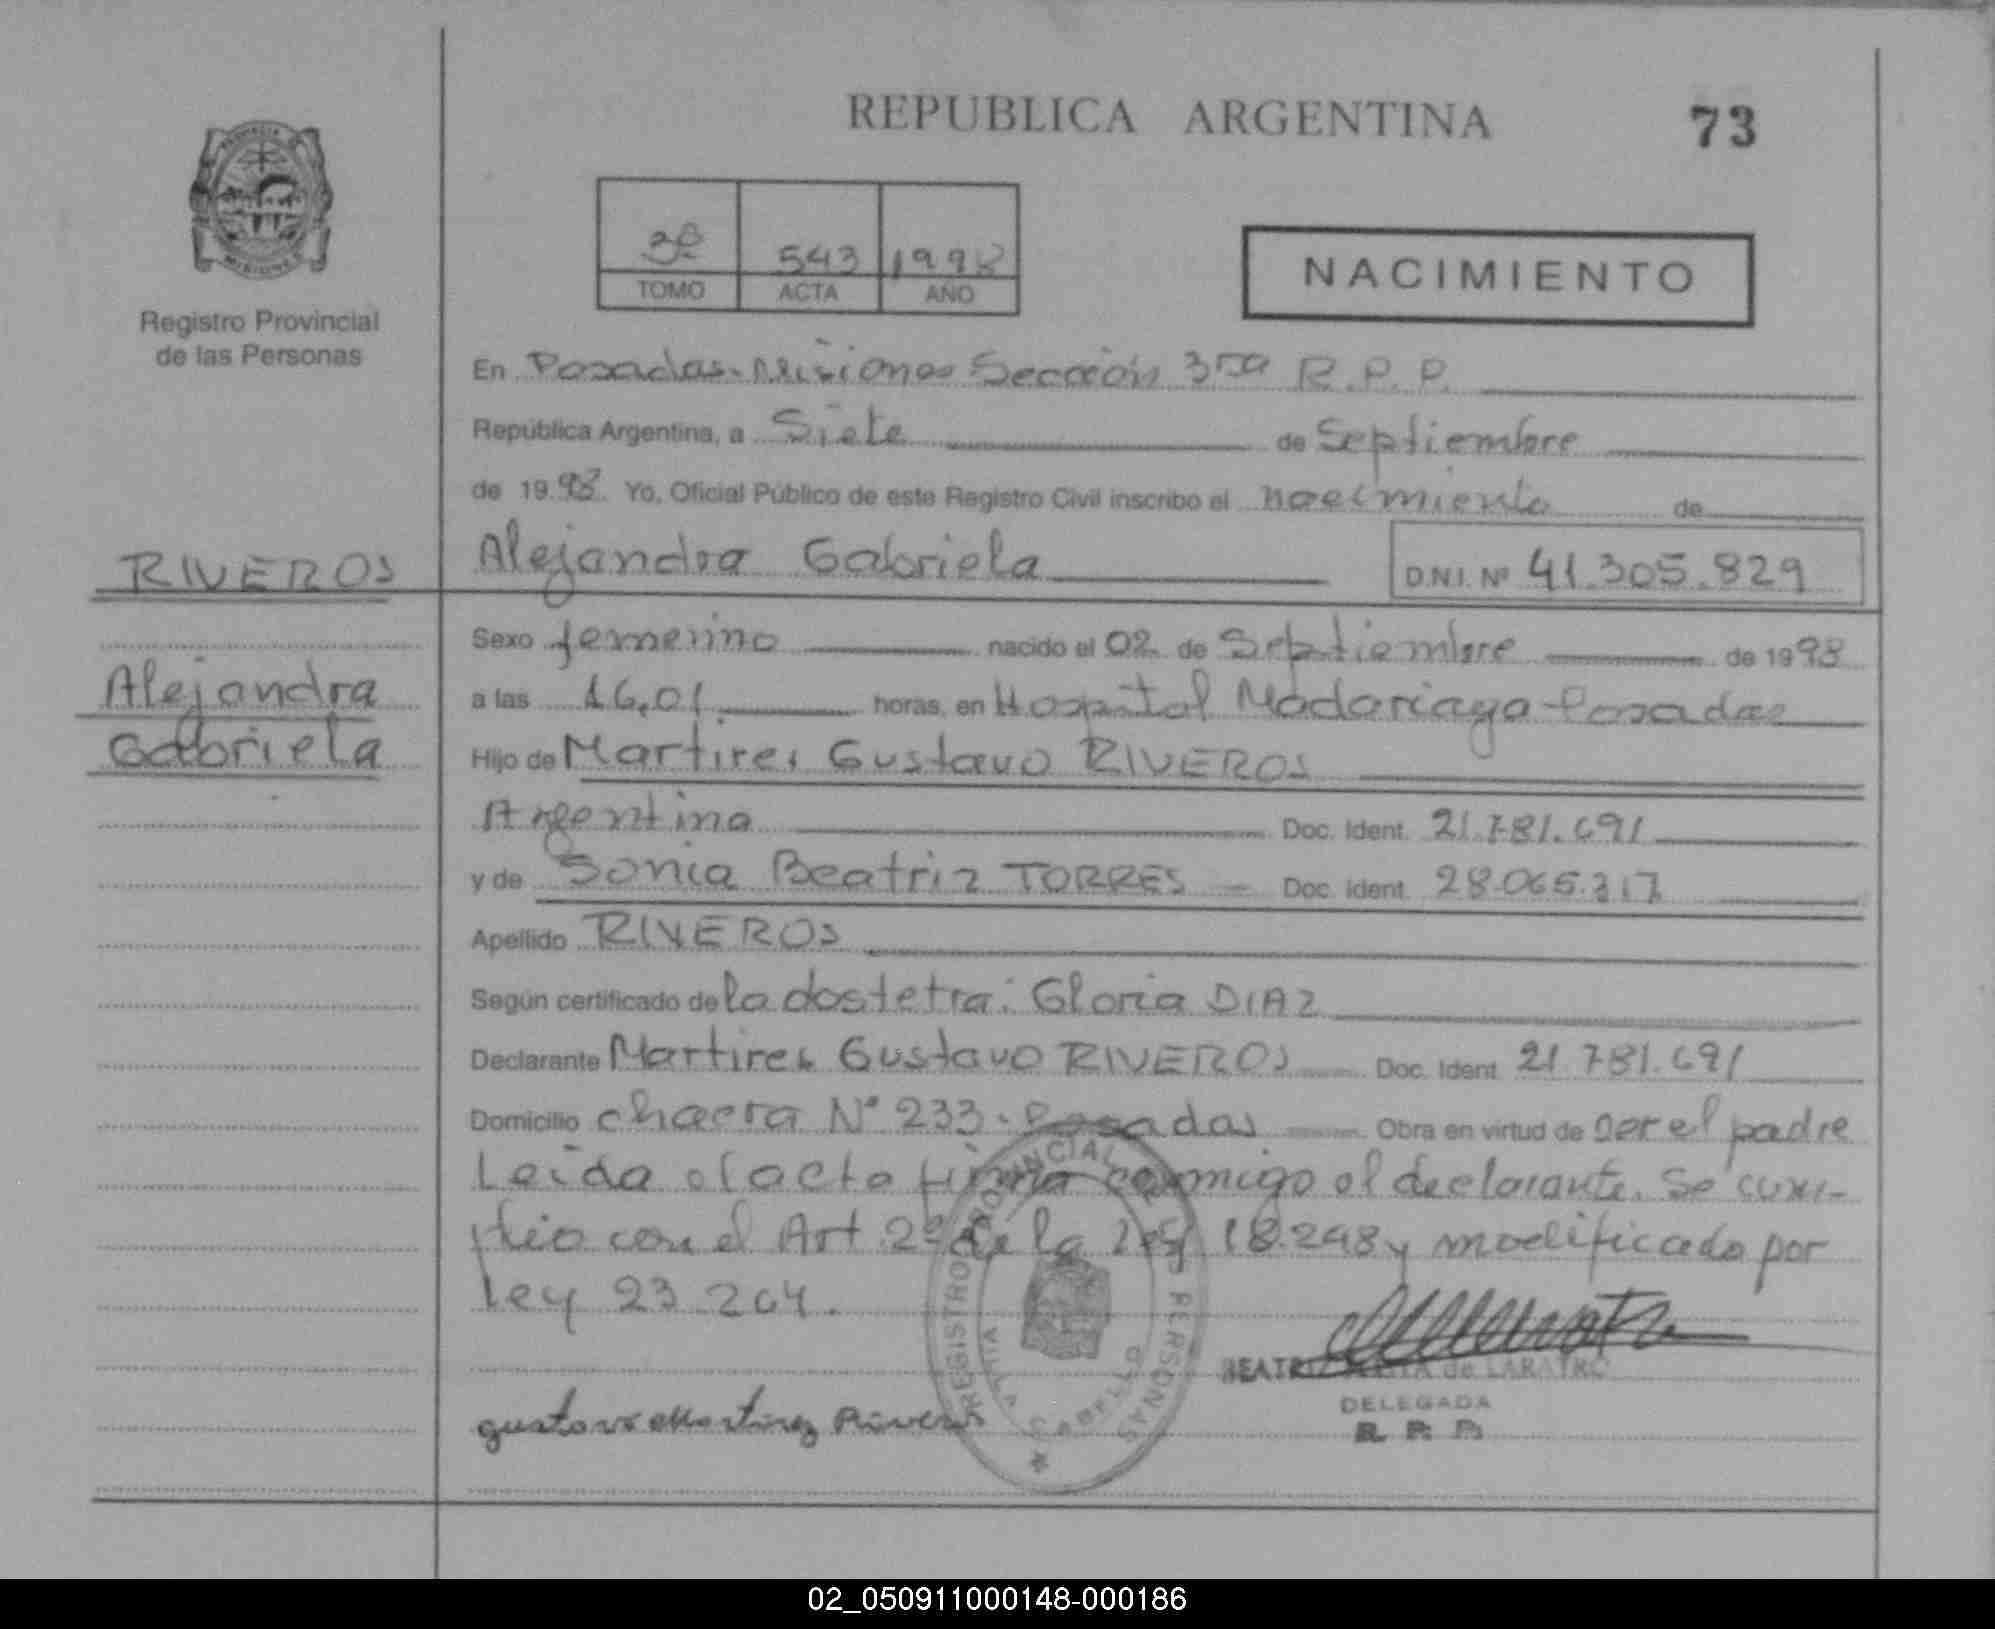 REPUBLICA ARGENTINA
73
3º 543 1998
TOMO ACTA AÑO
NACIMIENTO
PROVINCIA
MISIONES
Registro Provincial
de las Personas
En Posadas-Misiones Sección 3ra R.P.P.
República Argentina, a Siete de Septiembre
de 1998 Yo, Oficial Público de este Registro Civil inscribo el nacimiento de
RIVEROS
Alejandra Gabriela
D.N.I. Nº 41.305.829
Sexo femenino nacido el 02 de Septiembre de 1998
Alejandra
a las 16,01 horas, en Hospital Madariaga-Posadas
Gabriela
Hijo de Martires Gustavo RIVEROS
Argentina Doc. Ident. 21.781.691
y de Sonia Beatriz TORRES Doc. Ident. 28.065.317
Apellido RIVEROS
Según certificado de la obstetra: Gloria DIAZ
Declarante Martires Gustavo RIVEROS Doc. Ident. 21.781.691
Domicilio chacra Nº 233-Posadas Obra en virtud de ser el padre
Leida el acta firma conmigo el declarante. Se cum-
plio con el Art 2º de la ley 18.248 y modificado por
Ley 23.264.
REGISTRO PROVINCIAL PERSONAS
BEATRIZ de LARATRO
DELEGADA
R. P. P.
gustavo Martirez Riveros
02_050911000148-000186